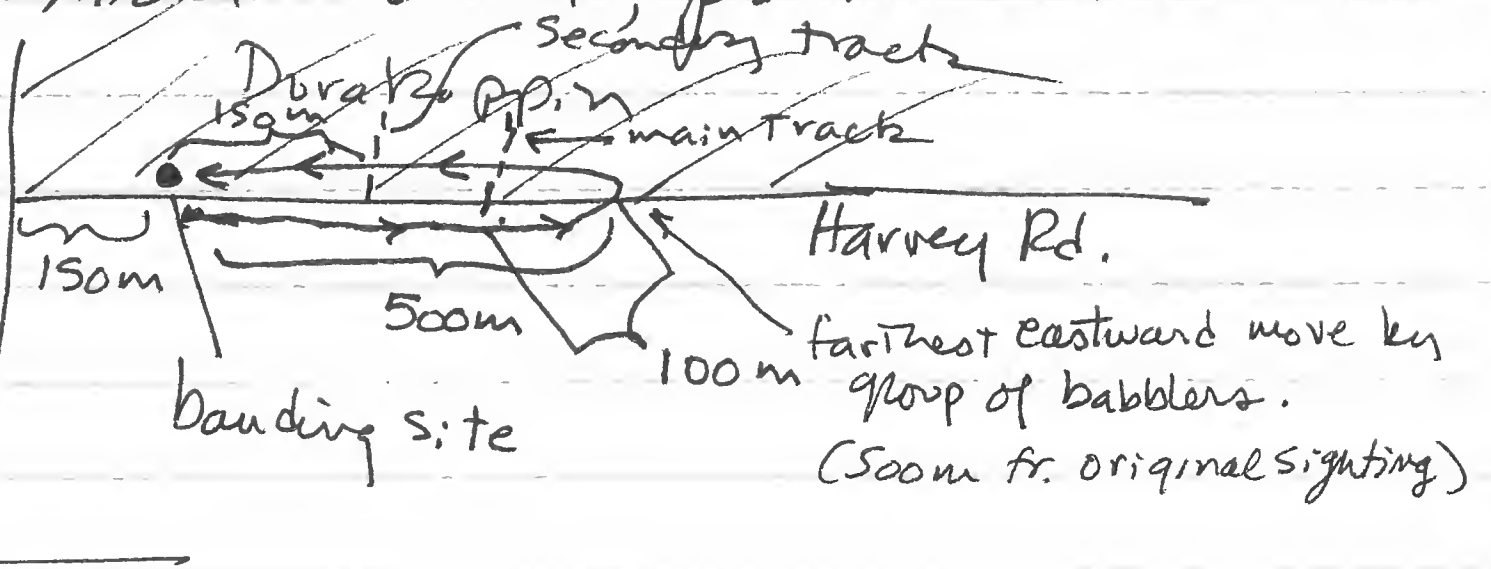 Secondary track
Durakoppin
150m
main track
Harvey Rd.
150m
500m
100m
farthest eastward move by
group of babblers.
(500m fr. original sighting)
banding site